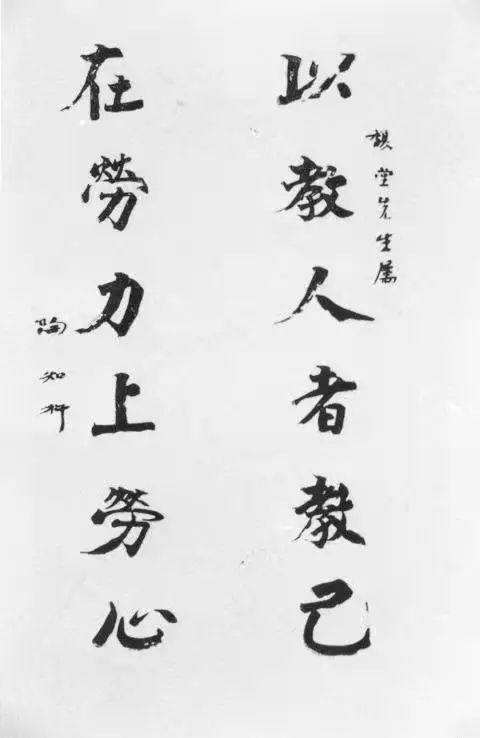 堂先生属
以教人者教己
在勞力上勞心
陶知行